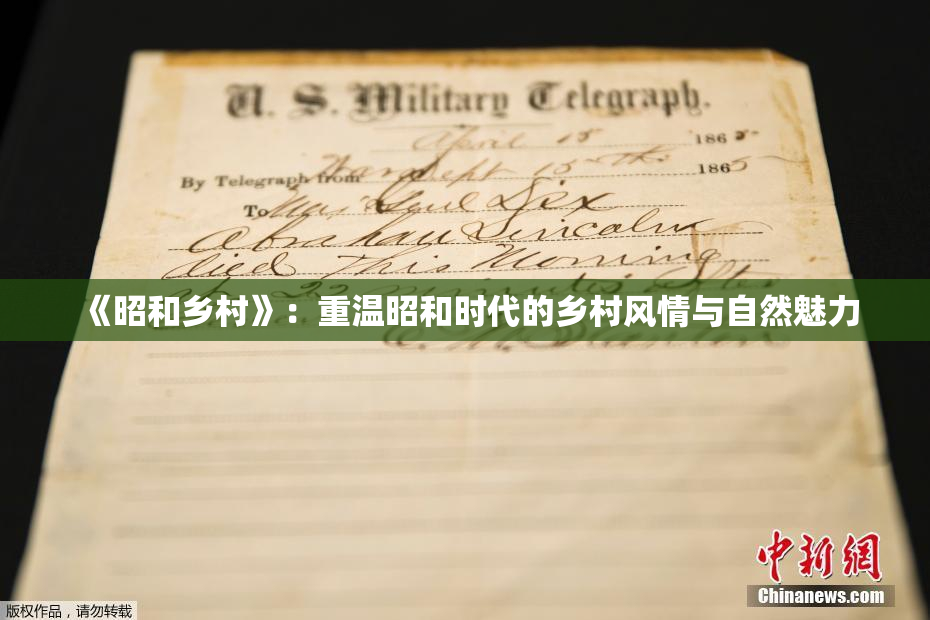 U. S. Military Telegraph.
April 15 1865
By Telegraph from War Dept 15th 1865
To Maj Genl Dix
Abraham Lincoln
died This Morning
at 22 minutes after
《昭和乡村》：重温昭和时代的乡村风情与自然魅力
中新网
Chinanews.com
版权作品，请勿转载